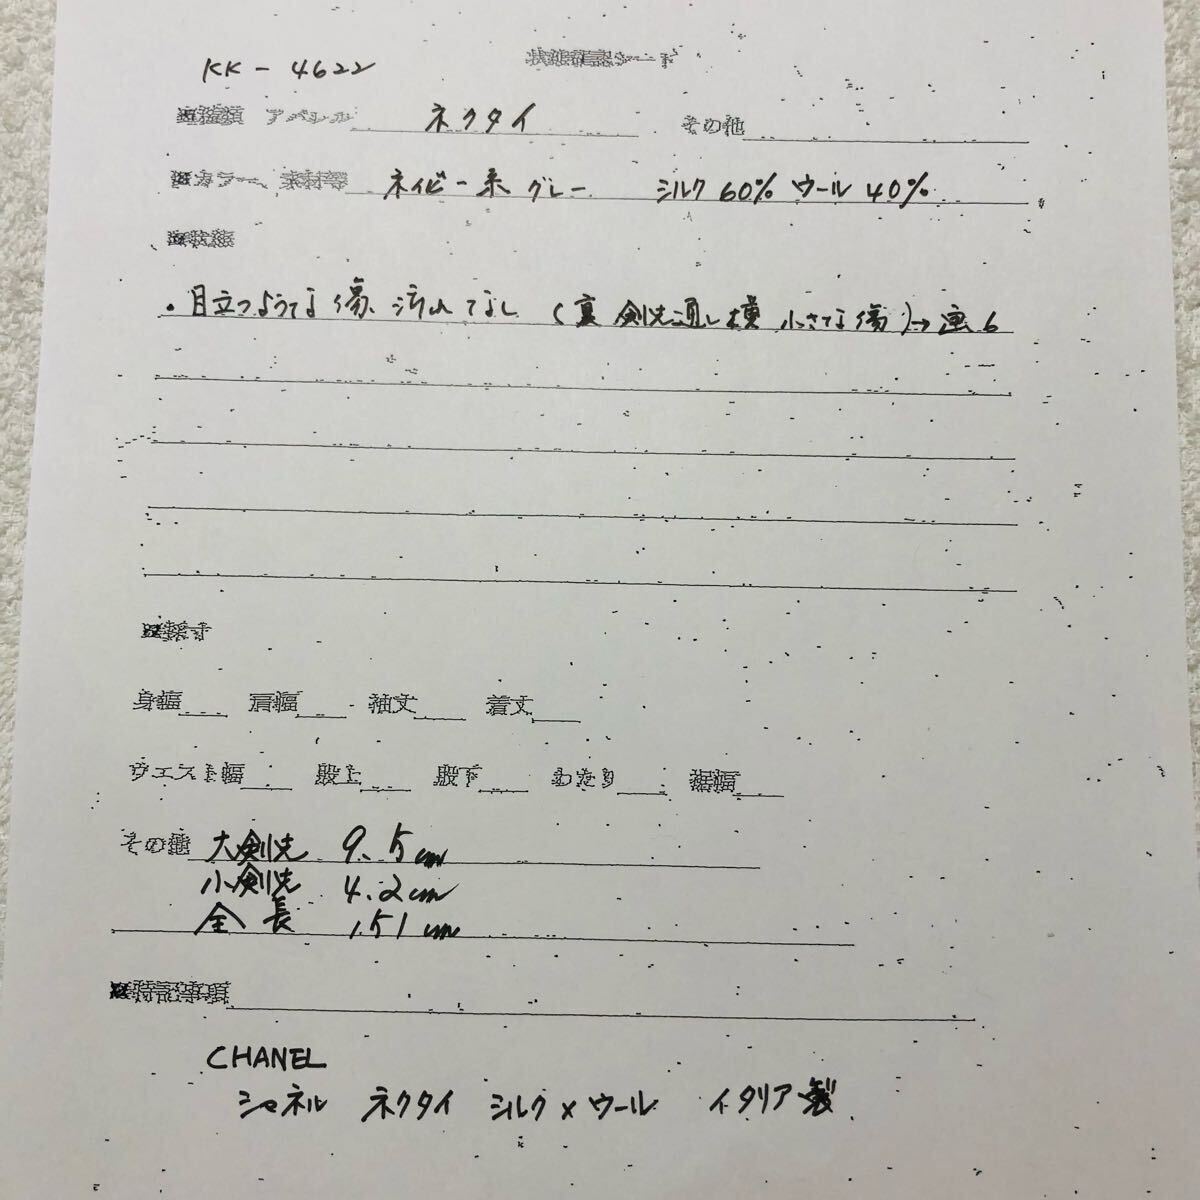 KK-4622
状態確認シート
※種類 アパレル ネクタイ その他
※カラー、素材等 ネイビー系 グレー シルク60% ウール40%
※状態
・目立つような傷、汚れなし (裏 剣先通し横 小さな傷)→画6
※採寸
身幅 肩幅 袖丈 着丈
ウエスト幅 股上 股下 わたり 裾幅
その他 大剣先 9.5cm
小剣先 4.2cm
全長 151cm
※特記事項
CHANEL
シャネル ネクタイ シルク×ウール イタリア製